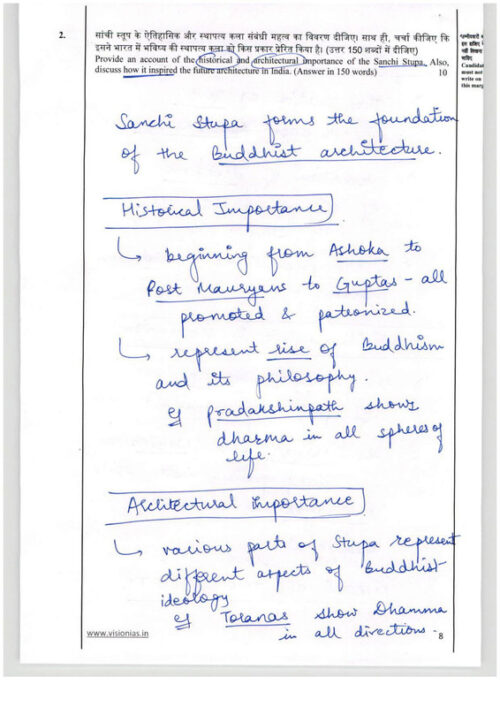 2.
सांची स्तूप के ऐतिहासिक और स्थापत्य कला संबंधी महत्व का विवरण दीजिए। साथ ही, चर्चा कीजिए कि
इसने भारत में भविष्य की स्थापत्य कला को किस प्रकार प्रेरित किया है। (उत्तर 150 शब्दों में दीजिए)
Provide an account of the historical and architectural importance of the Sanchi Stupa. Also,
discuss how it inspired the future architecture in India. (Answer in 150 words) 10
must not
write on
this marg
Sanchi Stupa forms the foundation
of the Buddhist architecture.
Historical Importance
beginning from Ashoka to
Post Mauryans to Guptas - all
promoted & patronized.
represent rise of Buddhism
and its philosophy.
eg Pradakshinpath shows
dharma in all spheres of
life.
Architectural Importance
various parts of Stupa represent
different aspects of Buddhist
ideology
eg Toranas show Dhamma
in all directions.
www.visionias.in
8